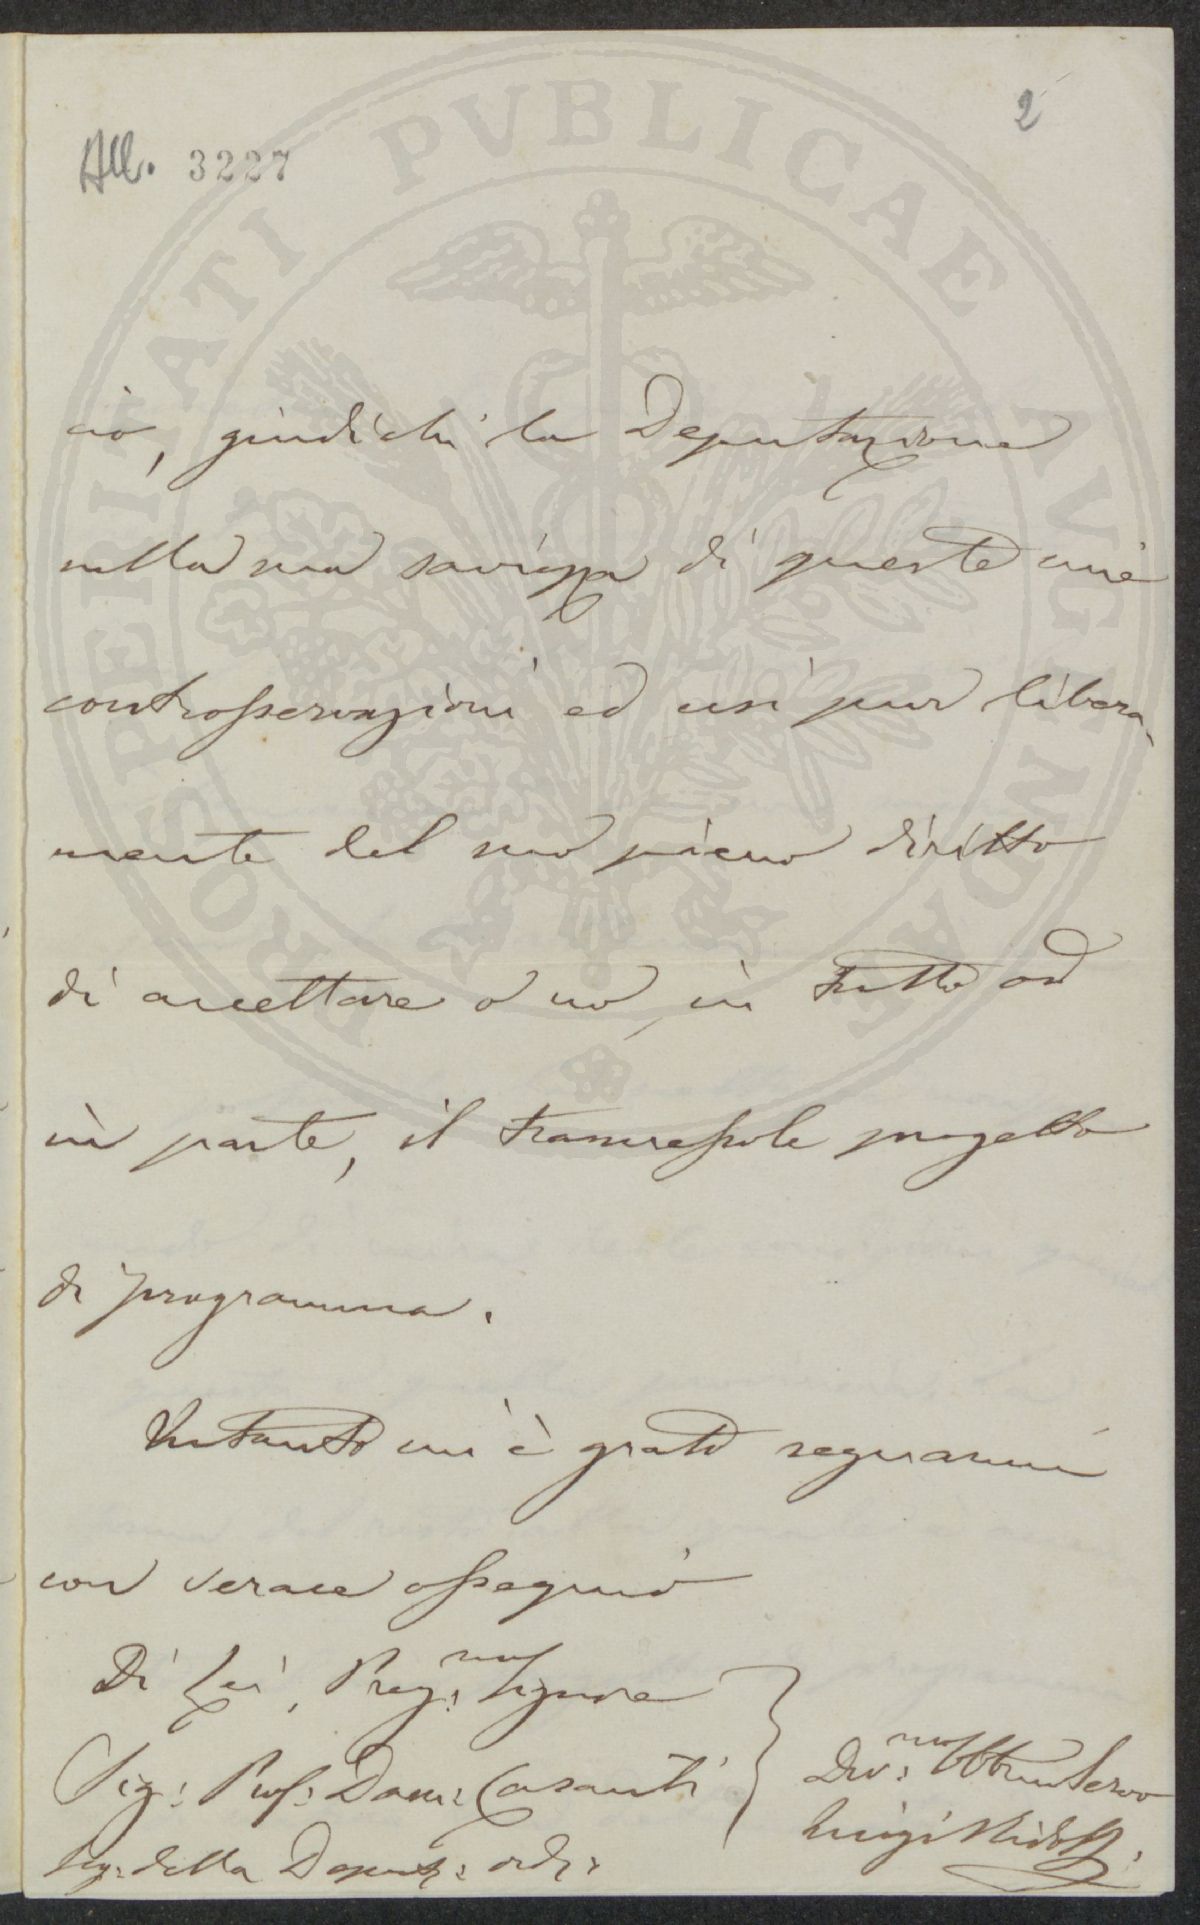 2
All. 3227
PROSPERITATI PVBLICAE AVGENDAE
ciò, giudichi la Deputazione
nella sua saviezza di queste mie
controsservazioni ed usi pur libera-
mente del suo pieno diritto
di accettare o no, in tutto od
in parte, il trasmessole progetto
di programma.
Intanto mi è grato segnarmi
con verace ossequio
Di Lei, Preg:mo Signore
Sig: Prof: Dom: Casanti
Seg: della Deput: ord:
Dev:mo Obbmo Servo
Luigi Ridolfi.